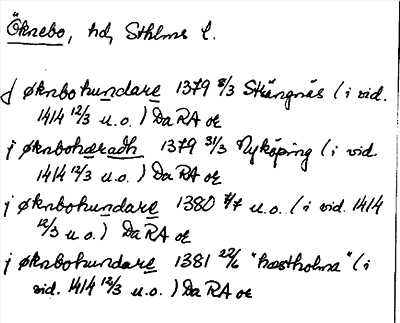 Öknebo, hd, Sthlms l.
j øknbohundare 1379 8/3 Strängnäs (i vid.
1414 12/3 u.o.) Da RA or
j øknbohæradh 1379 31/3 Nyköping (i vid.
1414 12/3 u.o.) Da RA or
j øknbohundare 1380 7/7 u.o. (i vid. 1414
12/3 u.o.) Da RA or
j øknbohundare 1381 22/6 "hæstholma" (i
vid. 1414 12/3 u.o.) Da RA or